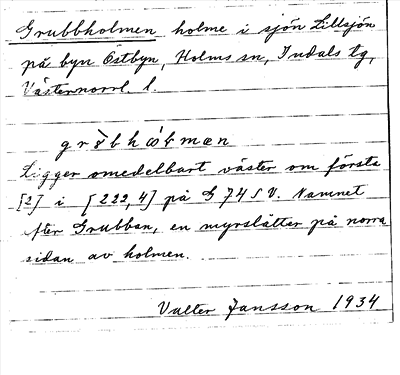 Grubbholmen holme i sjön Lillsjön
på byn Östbyn, Holms sn, Indals tg,
Västernorrl. l.
Ligger omedelbart väster om första
[2] i [222,4] på G 74 S V. Namnet
efter Grubban, en myrslåtter på norra
sidan av holmen.
Valter Jansson 1934